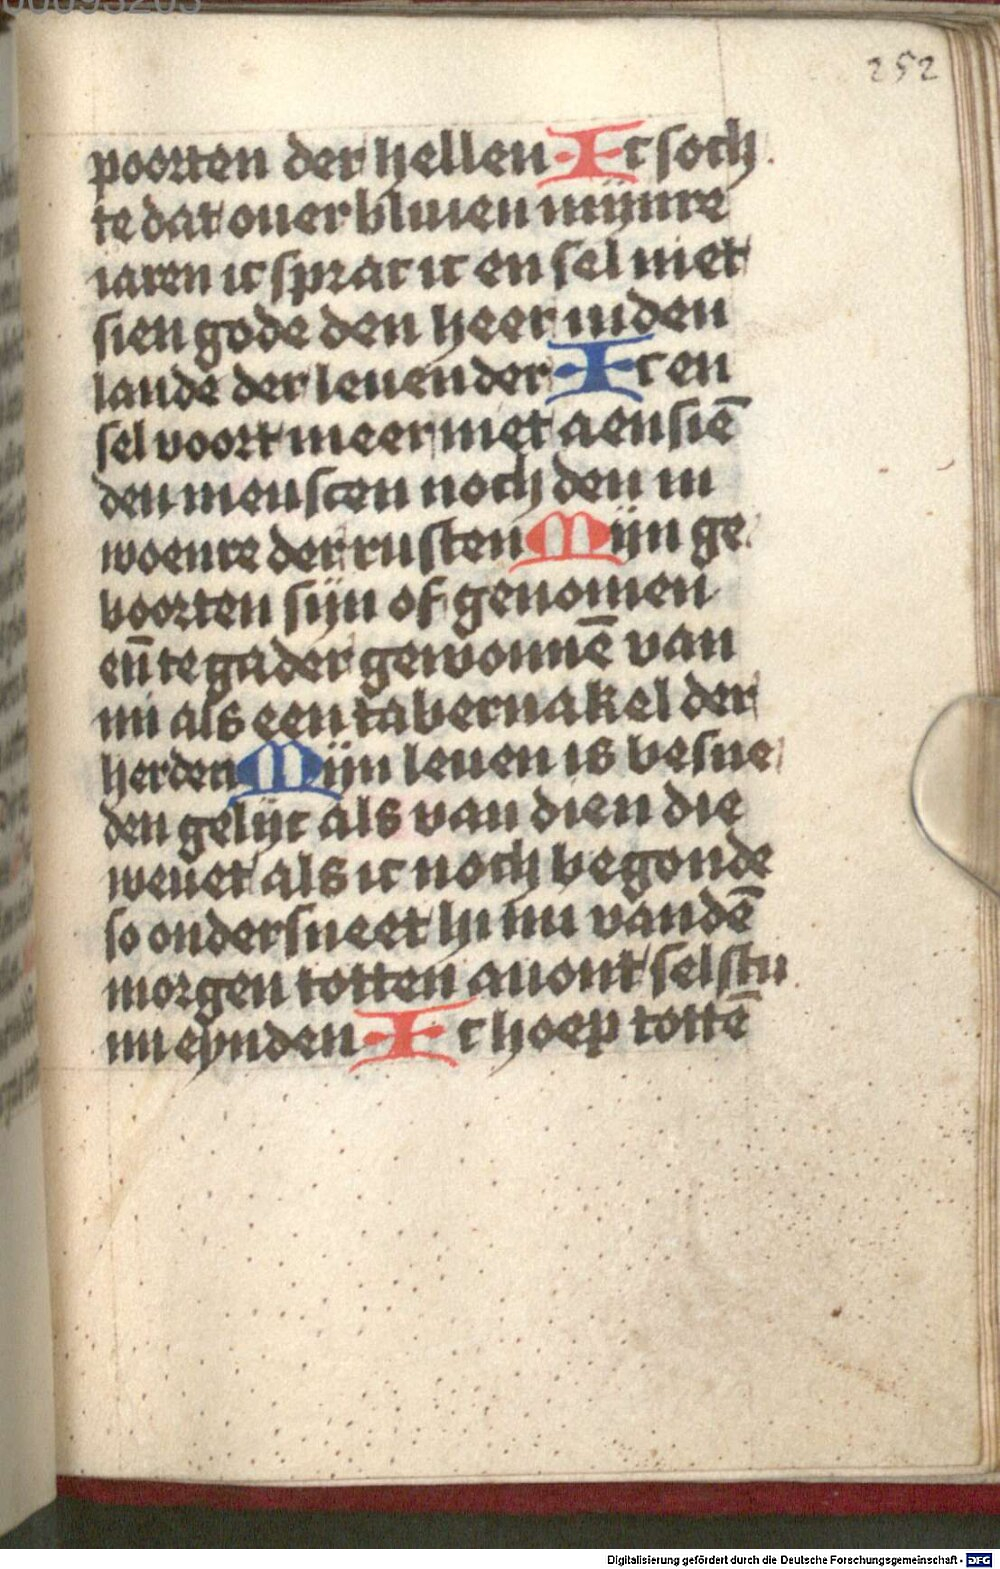 252
poorten der hellen Ic soch
te dat ouerbliuen mijnre
iaren ic sprac ic en sel niet
sien gode den heer inden
lande der leuender Ic en
sel voort meer niet aensiē
den menscen noch den in
woenre der rusten Mijn ge
boorten sijn of genomen
eñ te gader gewonnē van
mi als een tabernakel der
herden Mijn leuen is besne
den gelijc als van dien die
weuet als ic noch begonde
so ondersneet hi mi vandē
morgen totten auont selstu
mi eynden Ic hoep tottē
Digitalisierung gefördert durch die Deutsche Forschungsgemeinschaft - DFG